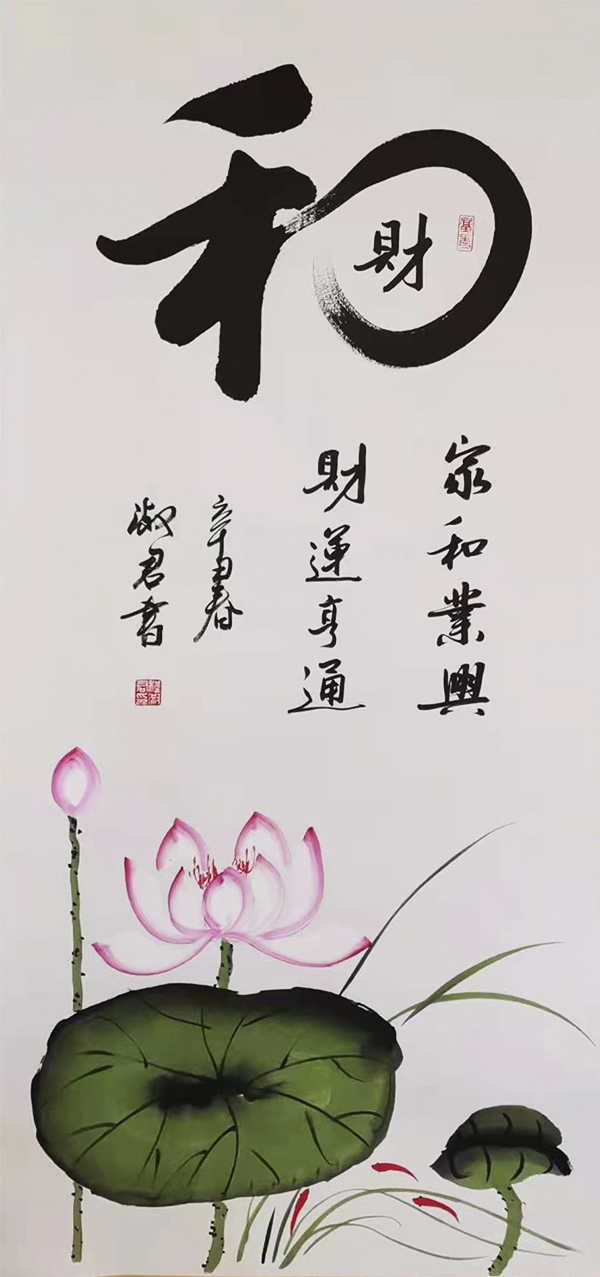 和
財
家和業興
財運亨通
辛丑春
淑君書